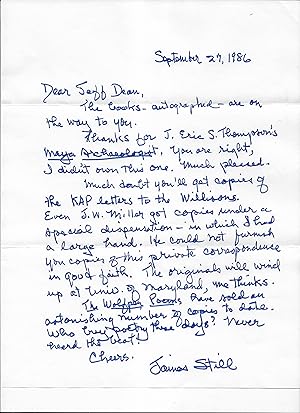 September 27, 1986
Dear Jeff Dean,
The books - autographed - are on
the way to you.
Thanks for J. Eric S. Thompson's
Maya Archaeologist. You are right,
I didn't own this one. Much pleased.
Much doubt you'll get copies of
the KAP letters to the Willisons.
Even J.W. Miller got copies under a
special dispensation - in which I had
a large hand. He could not furnish
you copies of this private correspondence
in good faith. The originals will wind
up at Univ. of Maryland, me thinks.
The Wolfpen Poems have sold an
astonishing number of copies to date.
Who buys poetry these days? Never
heard the beat!
Cheers.
James Still